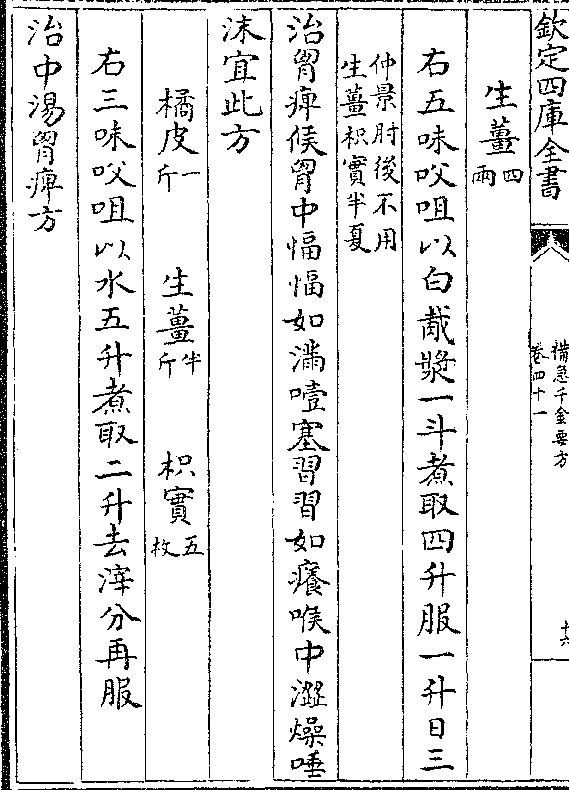 欽定四庫全書
備急千金要方
卷四十一
十六
生薑四兩
右五味㕮咀以白酨漿一斗煮取四升服一升日三
仲景肘後不用
生薑枳實半夏
治胷痺候胷中愊愊如滿噎塞習習如癢喉中澀燥唾
沫宜此方
橘皮一斤 生薑半斤 枳實五枚
右三味㕮咀以水五升煮取二升去滓分再服
治中湯胷痺方